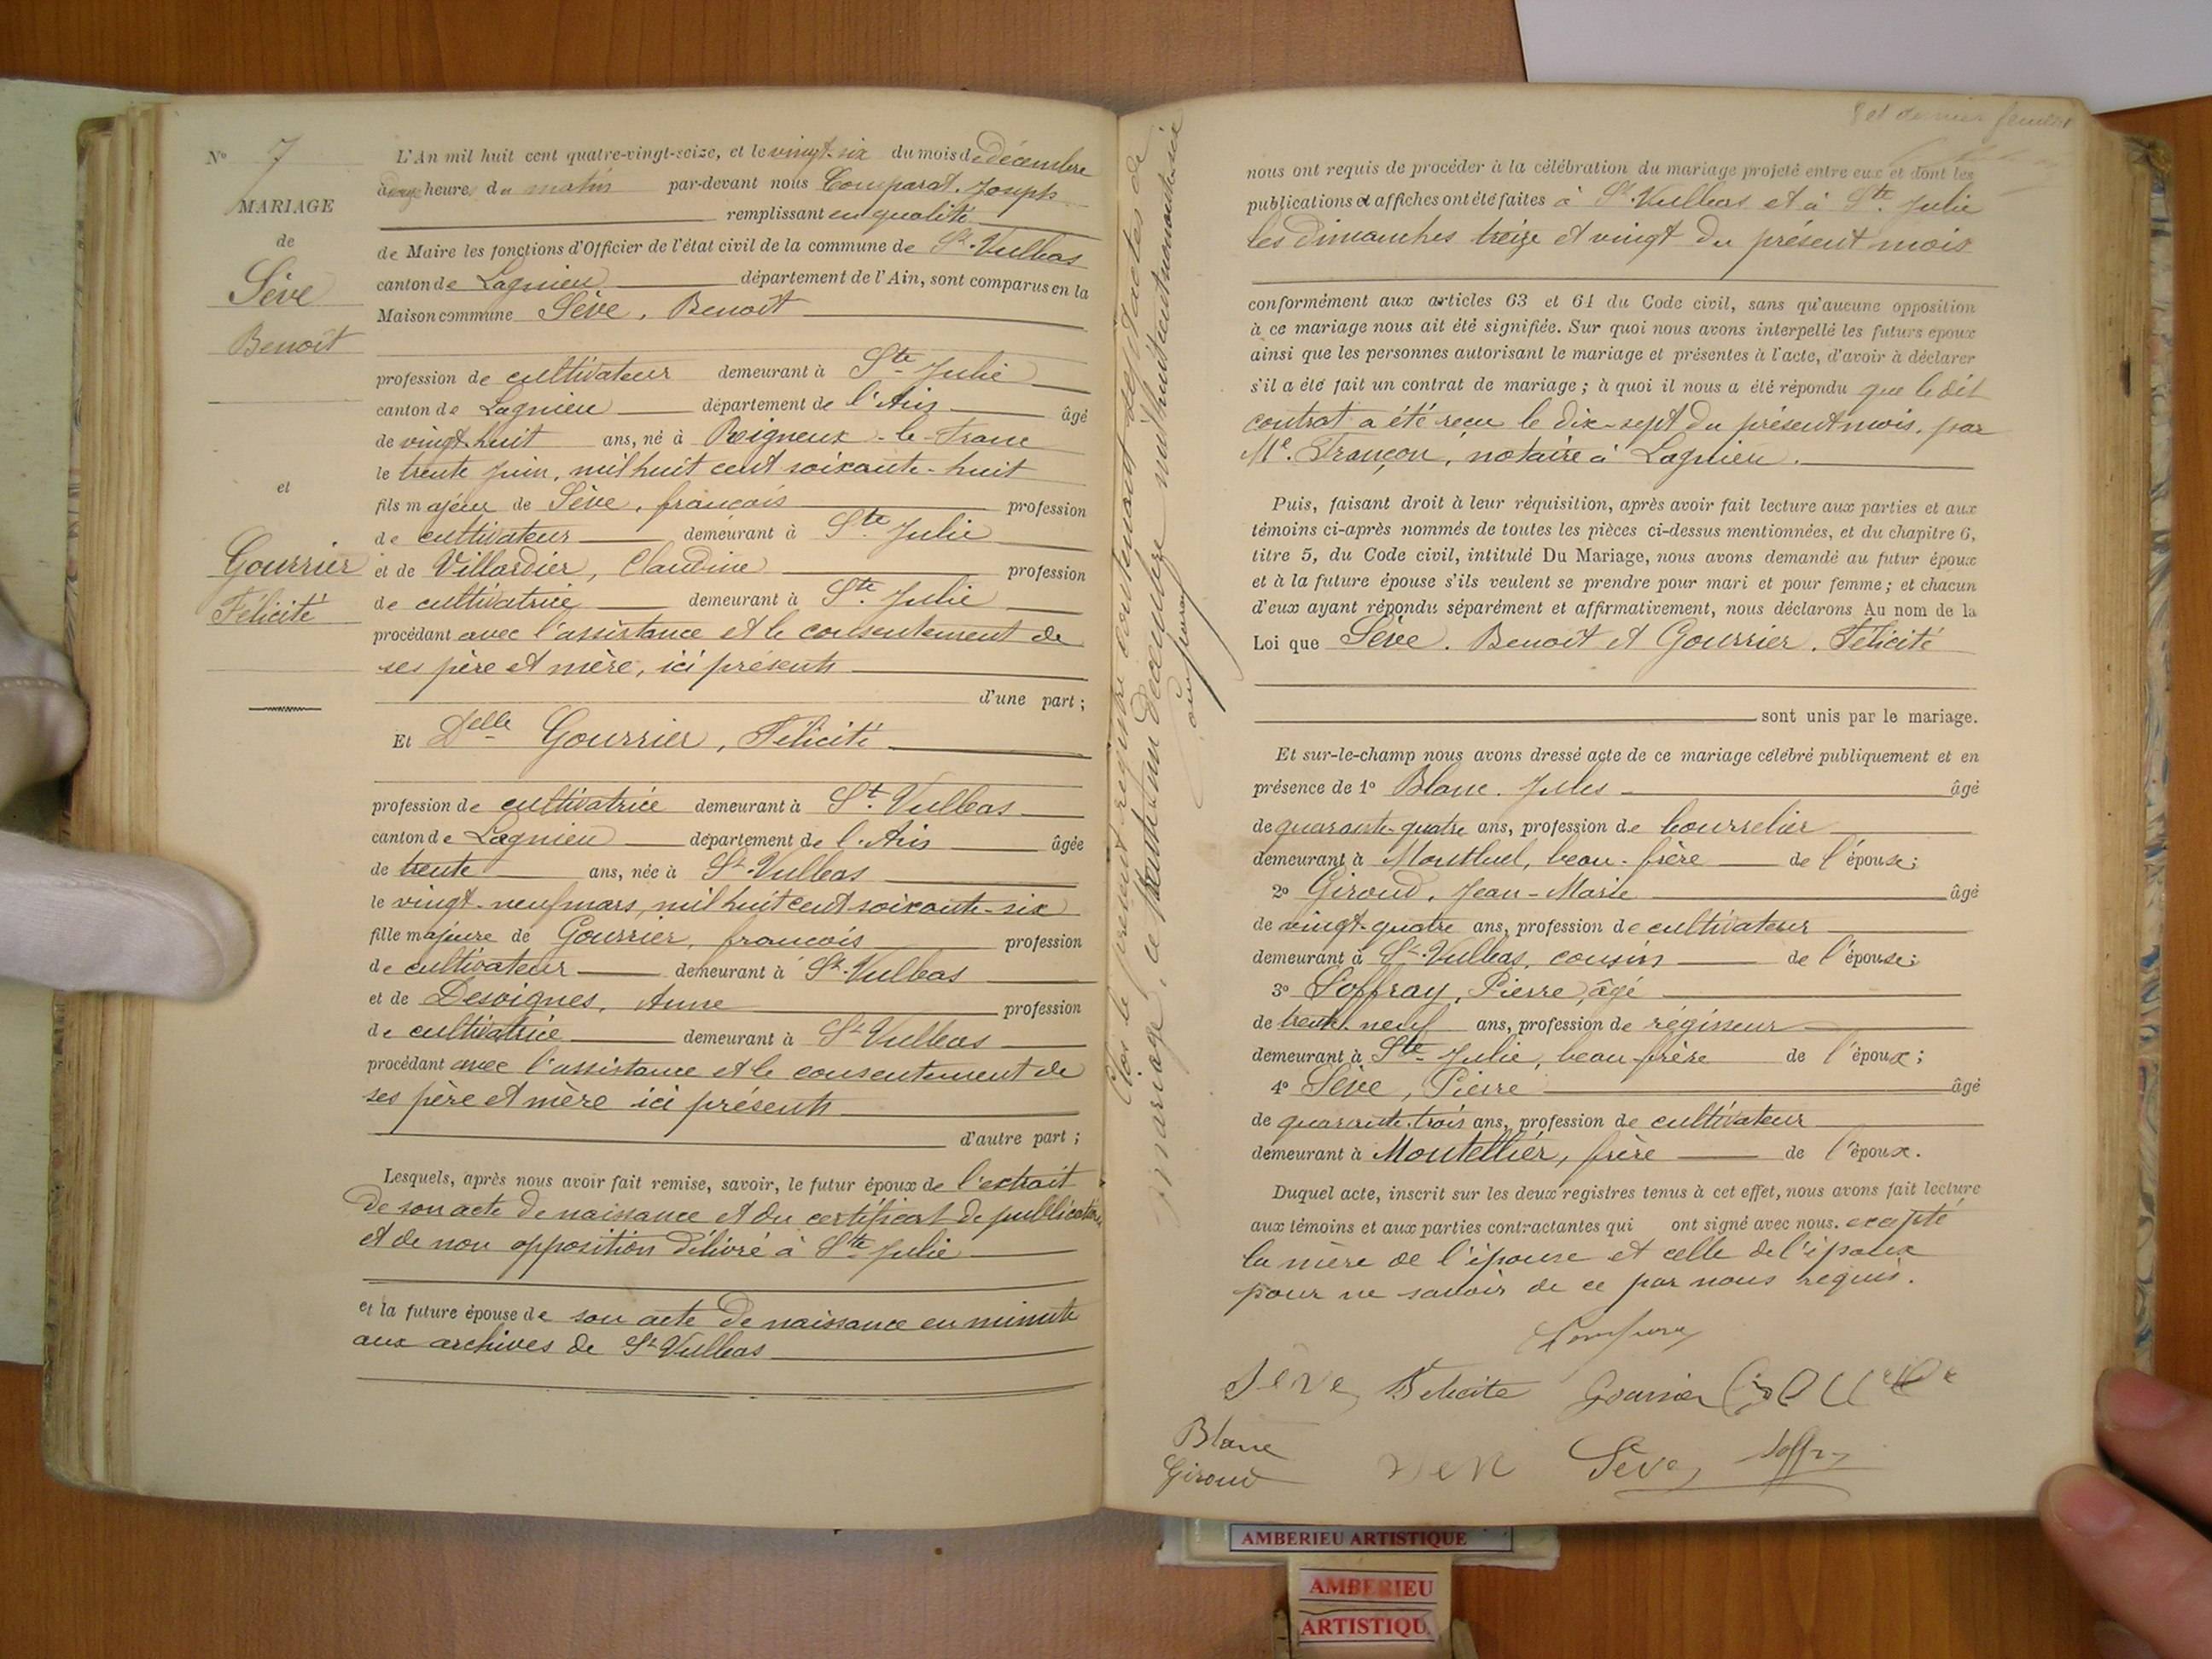 N° 7
MARIAGE
de
Sève
Benoît
et
Gourrier
Félicité
L'An mil huit cent quatre-vingt-seize, et le vingt-six du mois de décembre
à heures du matin par-devant nous Comparat, Joseph
remplissant en qualité
de Maire les fonctions d'Officier de l'état civil de la commune de St. Vulbas
canton de Lagnieu département de l'Ain, sont comparus en la
Maison commune Sève, Benoît
profession de cultivateur demeurant à Ste Julie
canton de Lagnieu département de l'Ain âgé
de vingt-huit ans, né à Reigneux-le-Franc
le trente Juin, mil huit cent soixante-huit
fils majeur de Sève, françois profession
de cultivateur demeurant à Ste Julie
et de Villardier, Claudine profession
de cultivatrice demeurant à Ste. Julie
procédant avec l'assistance et le consentement de
ses père et mère, ici présents
d'une part ;
Et Delle Gourrier, Félicité
profession de cultivatrice demeurant à St. Vulbas
canton de Lagnieu département de l'Ain âgée
de trente ans, née à St. Vulbas
le vingt-neuf mars, mil huit cent soixante-six
fille majeure de Gourrier, françois profession
de cultivateur demeurant à St. Vulbas
et de Desvignes, Anne profession
de cultivatrice demeurant à St Vulbas
procédant avec l'assistance et le consentement de
ses père et mère ici présents
d'autre part ;
Lesquels, après nous avoir fait remise, savoir, le futur époux de l'extrait
de son acte de naissance et du certificat de publication
et de non opposition délivré à Ste Julie
et la future épouse de son acte de naissance en minute
aux archives de St Vulbas
Clos le présent registre contenant sept actes de
mariage, ce trente-un Décembre mil huit cent
8 et dernier feuillet
nous ont requis de procéder à la célébration du mariage projeté entre eux et dont les
publications et affiches ont été faites à St. Vulbas et à Ste. Julie
les Dimanches treize et vingt du présent mois
conformément aux articles 63 et 64 du Code civil, sans qu'aucune opposition
à ce mariage nous ait été signifiée. Sur quoi nous avons interpellé les futurs époux
ainsi que les personnes autorisant le mariage et présentes à l'acte, d'avoir à déclarer
s'il a été fait un contrat de mariage ; à quoi il nous a été répondu que ledit
contrat a été reçu le dix-sept du présent mois, par
Me. Françon, notaire à Lagnieu.
Puis, faisant droit à leur réquisition, après avoir fait lecture aux parties et aux
témoins ci-après nommés de toutes les pièces ci-dessus mentionnées, et du chapitre 6,
titre 5, du Code civil, intitulé Du Mariage, nous avons demandé au futur époux
et à la future épouse s'ils veulent se prendre pour mari et pour femme ; et chacun
d'eux ayant répondu séparément et affirmativement, nous déclarons Au nom de la
Loi que Sève, Benoît et Gourrier, Félicité
sont unis par le mariage.
Et sur-le-champ nous avons dressé acte de ce mariage célébré publiquement et en
présence de 1° Blanc, Jules âgé
de quarante-quatre ans, profession de bourrelier
demeurant à Montluel, beau-frère de l'épouse ;
2° Giroud, Jean-Marie âgé
de vingt-quatre ans, profession de cultivateur
demeurant à St. Vulbas, cousin de l'épouse ;
3° Soffray, Pierre, âgé
de trente-neuf ans, profession de régisseur
demeurant à Ste Julie, beau-frère de l'époux ;
4° Sève, Pierre âgé
de quarante-trois ans, profession de cultivateur
demeurant à Montellier, frère de l'époux.
Duquel acte, inscrit sur les deux registres tenus à cet effet, nous avons fait lecture
aux témoins et aux parties contractantes qui ont signé avec nous. excepté
la mère de l'épouse et celle de l'époux
pour ne savoir de ce par nous requis.
Sève Félicité Gourrier
Blanc
Giroud Sève Soffray
AMBERIEU ARTISTIQUE
AMBERIEU
ARTISTIQU